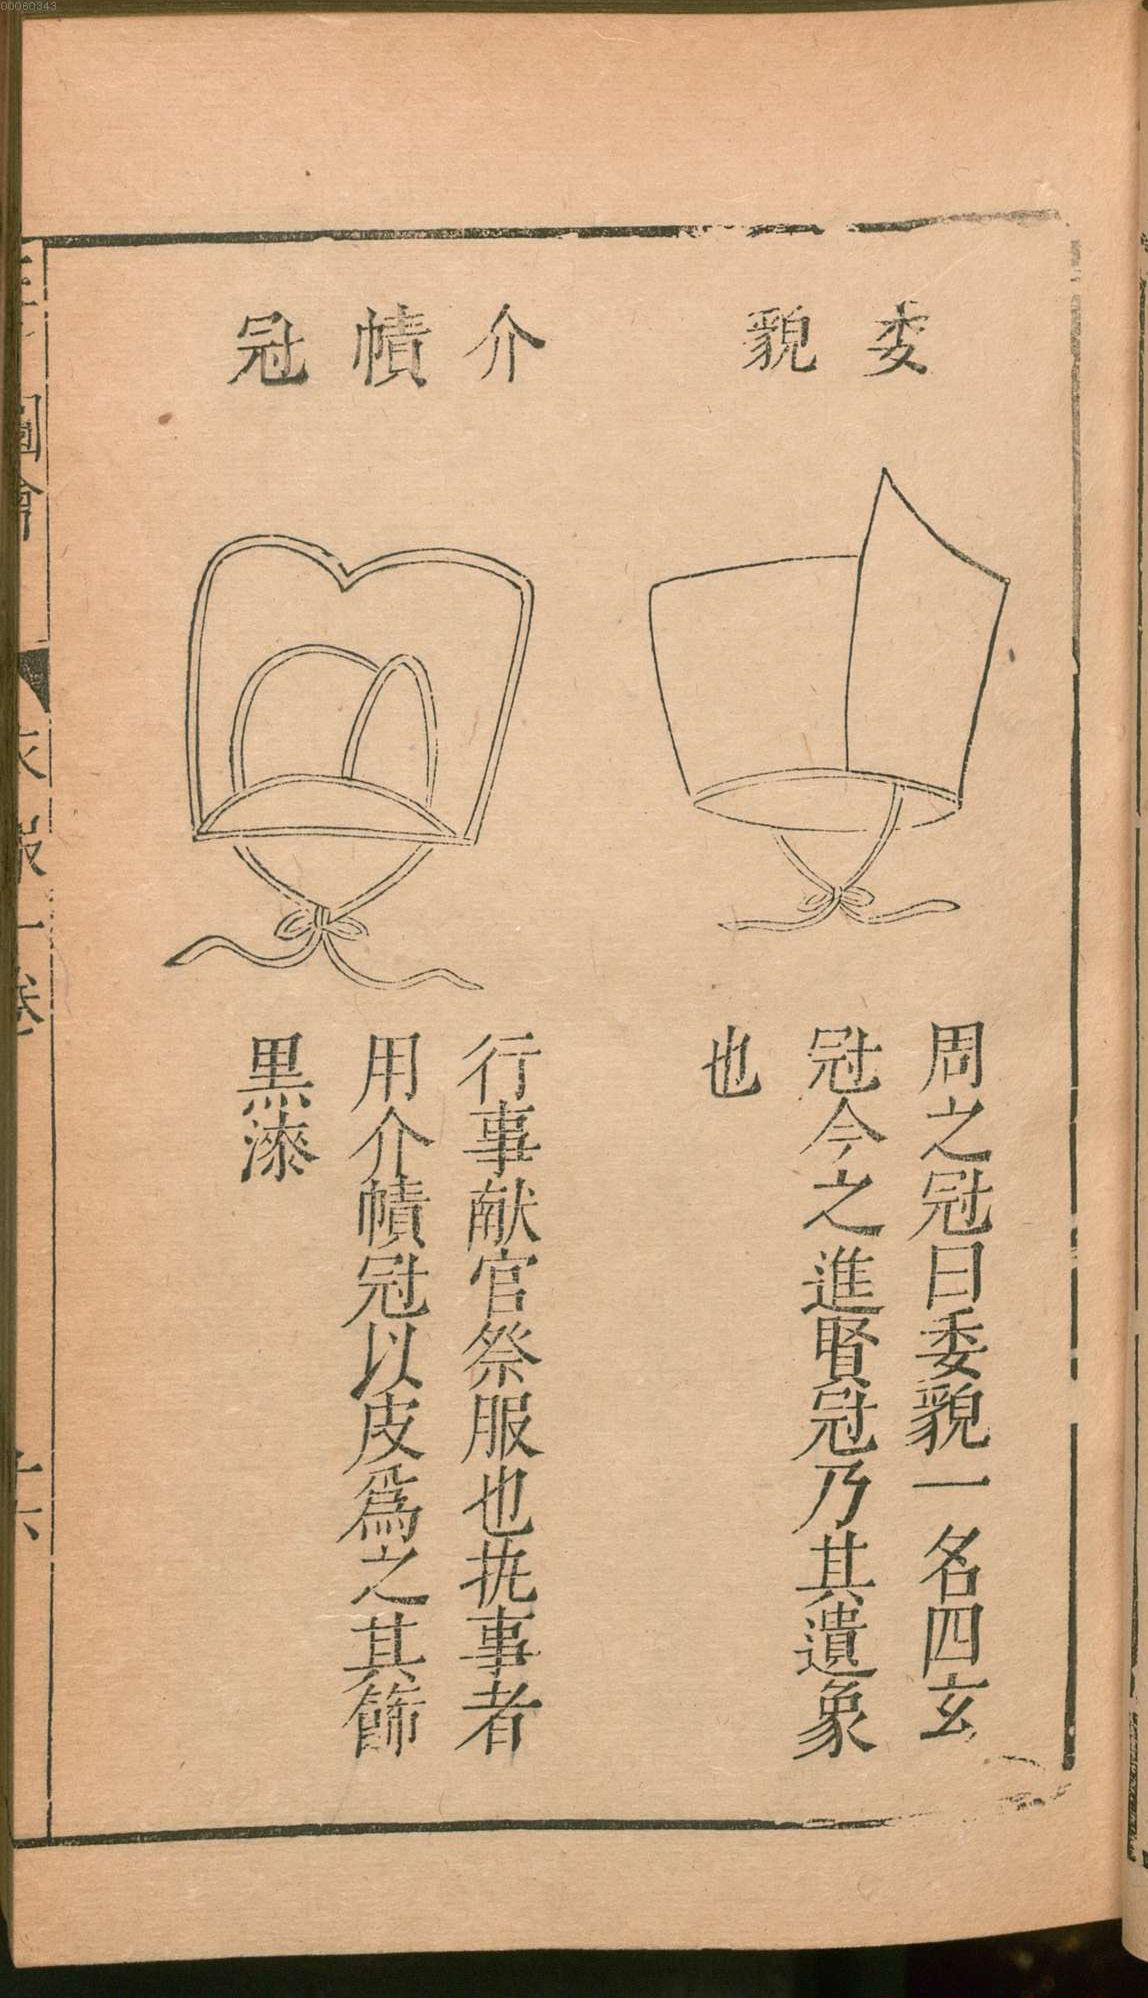 00060343
委貌
周之冠曰委貌一名四玄
冠今之進賢冠乃其遺象
也
介幘冠
行事献官祭服也執事者
用介幘冠以皮爲之其飾
黒漆
圖會
衣服一卷